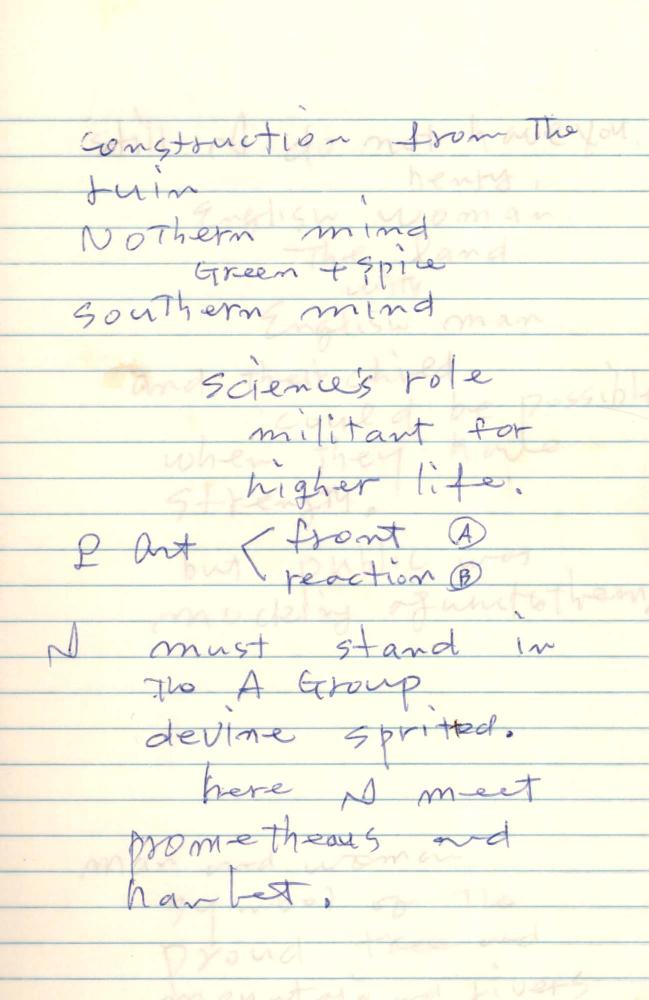 construction from The
ruin
Nothern mind
Green + spice
southern mind
science's role
militant for
higher life.
P Art < front Ⓐ
reaction Ⓑ
N must stand in
The A Group
devine sprited.
here N meet
prometheaus and
hamlet.